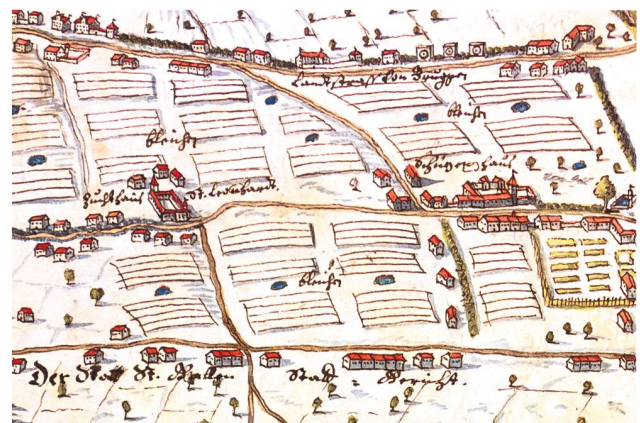 Landtstrass von Bruggen
bleiche
bleiche
Schützenhaus
Zuchthaus
St. Leonhardt
bleiche
Der Statt St. Gallen Statt = Gericht.